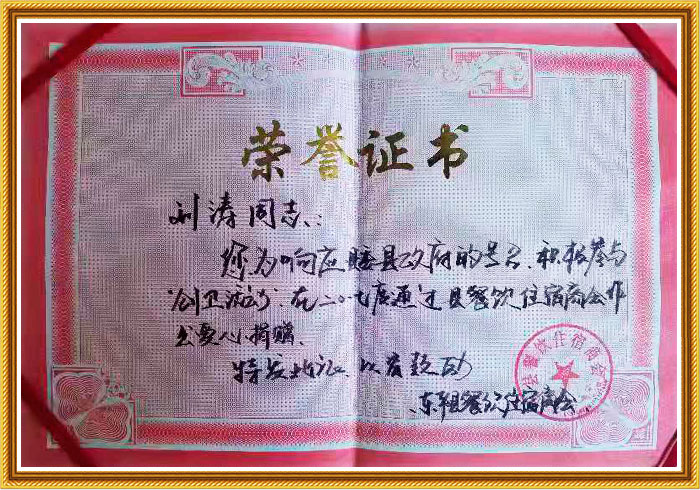 荣誉证书
刘涛同志：
您为响应睢县政府的号召.积极参与
"创卫活动".在二〇一七度通过县餐饮住宿商会作
出爱心捐赠.
特发此证.以资鼓励
县餐饮住宿商会
县餐饮住宿商会